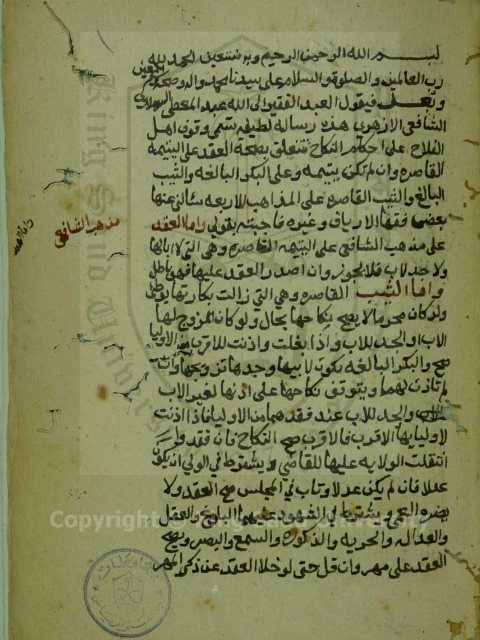 بسم الله الرحمن الرحيم وبه نستعين الحمد لله
رب العالمين والصلوة والسلام على سيدنا محمد واله وصحبه اجمعين
وبعد فيقول العبد الفقير الى الله عبد المعطى السملاوى
الشافعى الازهرى هذه رسالة لطيفه تسمى وقوف اهل
الفلاح على احكام النكاح تتعلق بصحة العقد على اليتيمه
القاصره وان لم تكن يتيمه وعلى البكر البالغه والثيب
البالغ والثيب القاصره على المذاهب الاربعه سألنى عنها
بعض فقها الارياف وغيره فاجبتهم بقولى واما العقد
على مذهب الشافعى على اليتيمه القاصره وهى التى لا اب لها
ولا جد لاب فلا يجوز وان صدر العقد عليها فهو باطل
واما الثيب القاصره وهى التى زالت بكارتها بوطئ
ولو كان محرما لا يصح نكاحها بحال ولو كان المزوج لها
الاب او الجد للاب واذا بلغت واذنت للاقرب من الاوليا
صح والبكر البالغه يكون لابيها وجدها تزويجها وان
لم تاذن لهما ويتوقف نكاحها على اذنها لغير الاب
والجد للاب عند فقدهما من الاوليا فاذا اذنت
لاوليايها الاقرب فالاقرب صح النكاح فان فقدوا
انتقلت الولايه عليها للقاضى ويشترط فى الولى ان يكون
عدلا فان لم يكن عدلا وتاب فى المجلس صح العقد ولا
يضره العمى ويشترط فى الشهود عندهما البلوغ والعقل
والعداله والحريه والذكوره والسمع والبصر ويصح
العقد على مهر وان قل حتى لو خلا العقد عن ذكر المهر
مذهب الشافعى
King Saud University
Copyright © King Saud University